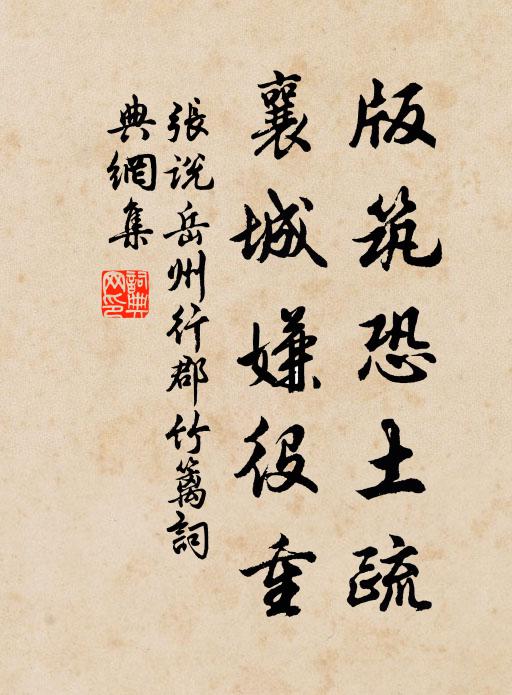 版筑恐土疏
襄城嫌役重
張説岳州行郡竹篱詞
典網集
詞典
网印